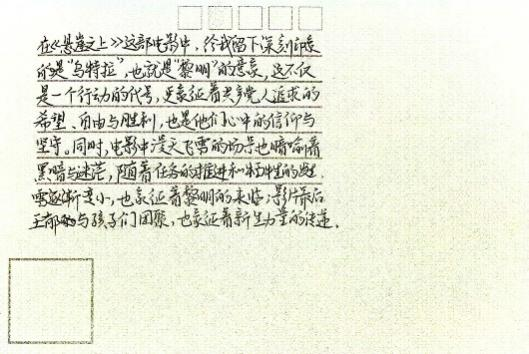 在《悬崖之上》这部电影中，给我留下深刻印象
的是“乌特拉”，也就是“黎明”的意象，这不仅
是一个行动的代号，更象征着共产党人追求的
希望、自由与胜利，也是他们心中的信仰与
坚守。同时，电影中漫天飞雪的场景也暗喻着
黑暗与迷茫，随着任务的推进和
雪逐渐变小，也象征着黎明的来临。影片最后
王郁与孩子们团聚，也象征着新生力量的传递。